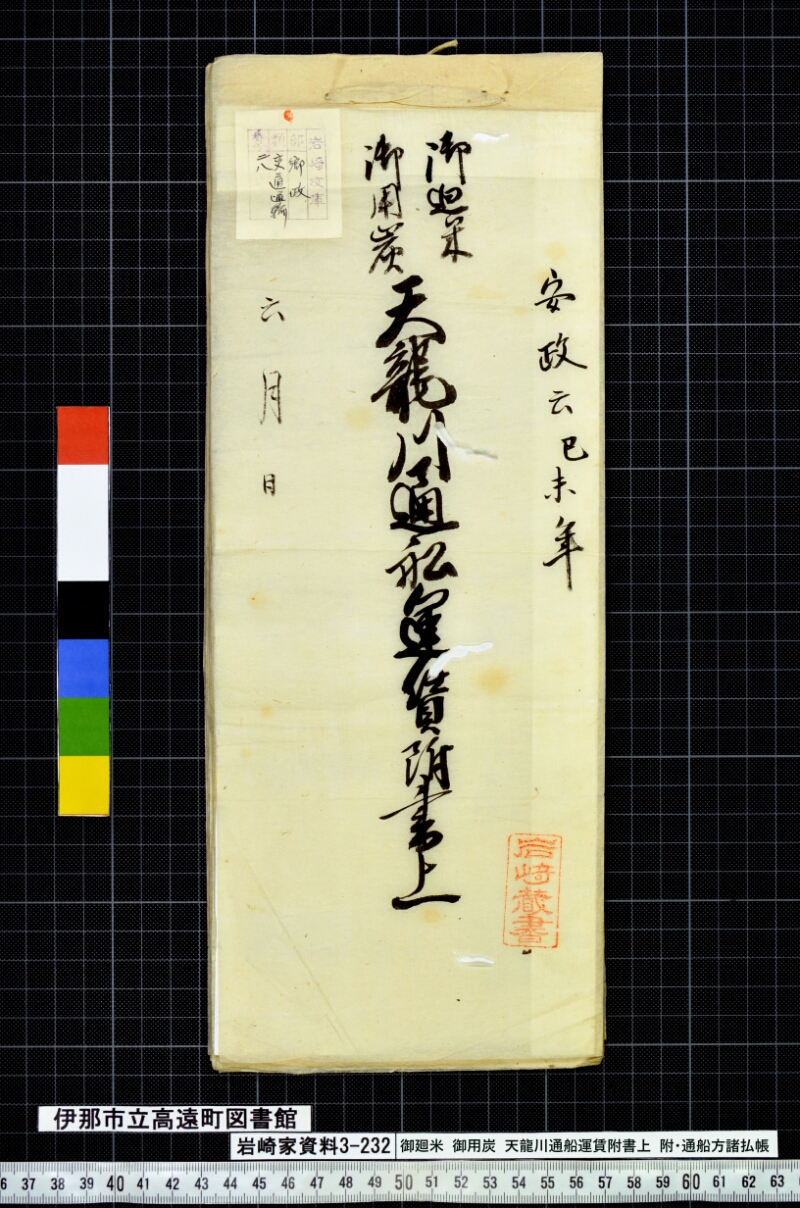 安政六己未年
御廻米
御用炭
天龍川通舩運賃附書上
六月 日
岩崎蔵書
岩崎文庫
部 郷政
交通運輸
伊那市立高遠町図書館
岩崎家資料3-232
御廻米 御用炭 天龍川通船運賃附書上 附・通船方諸払帳
6 37 38 39 40 41 42 43 44 45 46 47 48 49 50 51 52 53 54 55 56 57 58 59 60 61 62 63